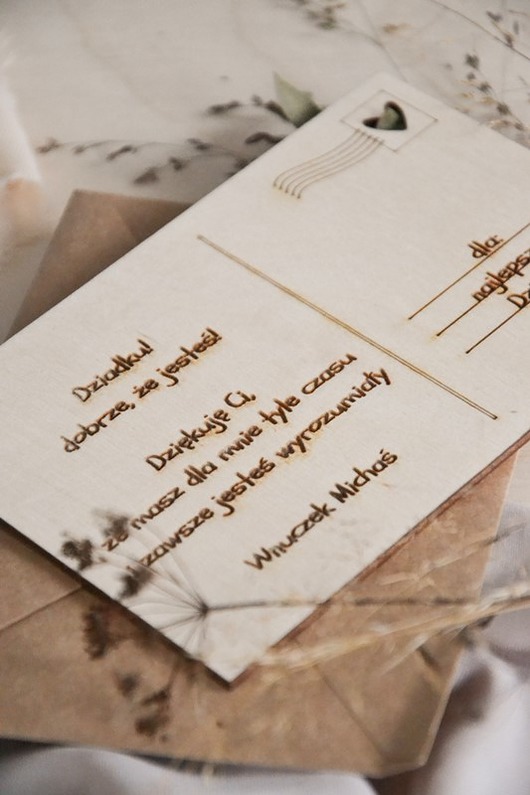 Dziadku!
dobrze, że jesteś!
Dziękuję Ci,
że masz dla mnie tyle czasu
zawsze jesteś wyrozumiały
Wnuczek Michaś
dla: